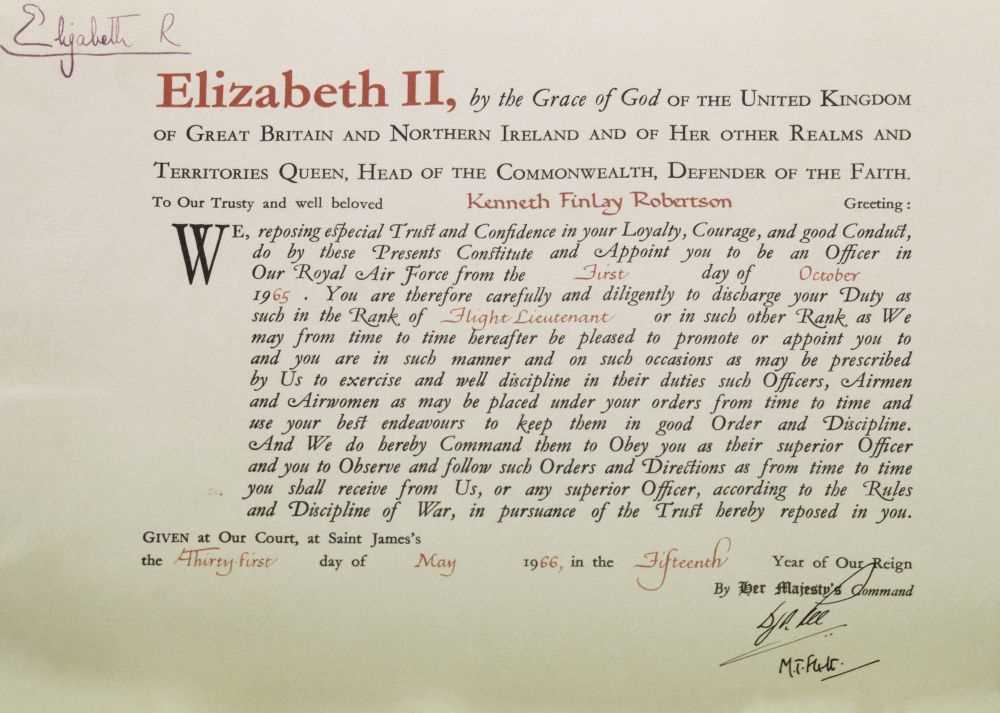 Elizabeth R
Elizabeth II, by the Grace of God OF THE UNITED KINGDOM
OF GREAT BRITAIN AND NORTHERN IRELAND AND OF HER OTHER REALMS AND
TERRITORIES QUEEN, HEAD OF THE COMMONWEALTH, DEFENDER OF THE FAITH.
To Our Trusty and well beloved Kenneth Finlay Robertson Greeting:
WE, reposing especial Trust and Confidence in your Loyalty, Courage, and good Conduct,
do by these Presents Constitute and Appoint you to be an Officer in
Our Royal Air Force from the First day of October
1965. You are therefore carefully and diligently to discharge your Duty as
such in the Rank of Flight Lieutenant or in such other Rank as We
may from time to time hereafter be pleased to promote or appoint you to
and you are in such manner and on such occasions as may be prescribed
by Us to exercise and well discipline in their duties such Officers, Airmen
and Airwomen as may be placed under your orders from time to time and
use your best endeavours to keep them in good Order and Discipline.
And We do hereby Command them to Obey you as their superior Officer
and you to Observe and follow such Orders and Directions as from time to time
you shall receive from Us, or any superior Officer, according to the Rules
and Discipline of War, in pursuance of the Trust hereby reposed in you.
GIVEN at Our Court, at Saint James's
the Thirty-first day of May 1966, in the Fifteenth Year of Our Reign
By Her Majesty's Command